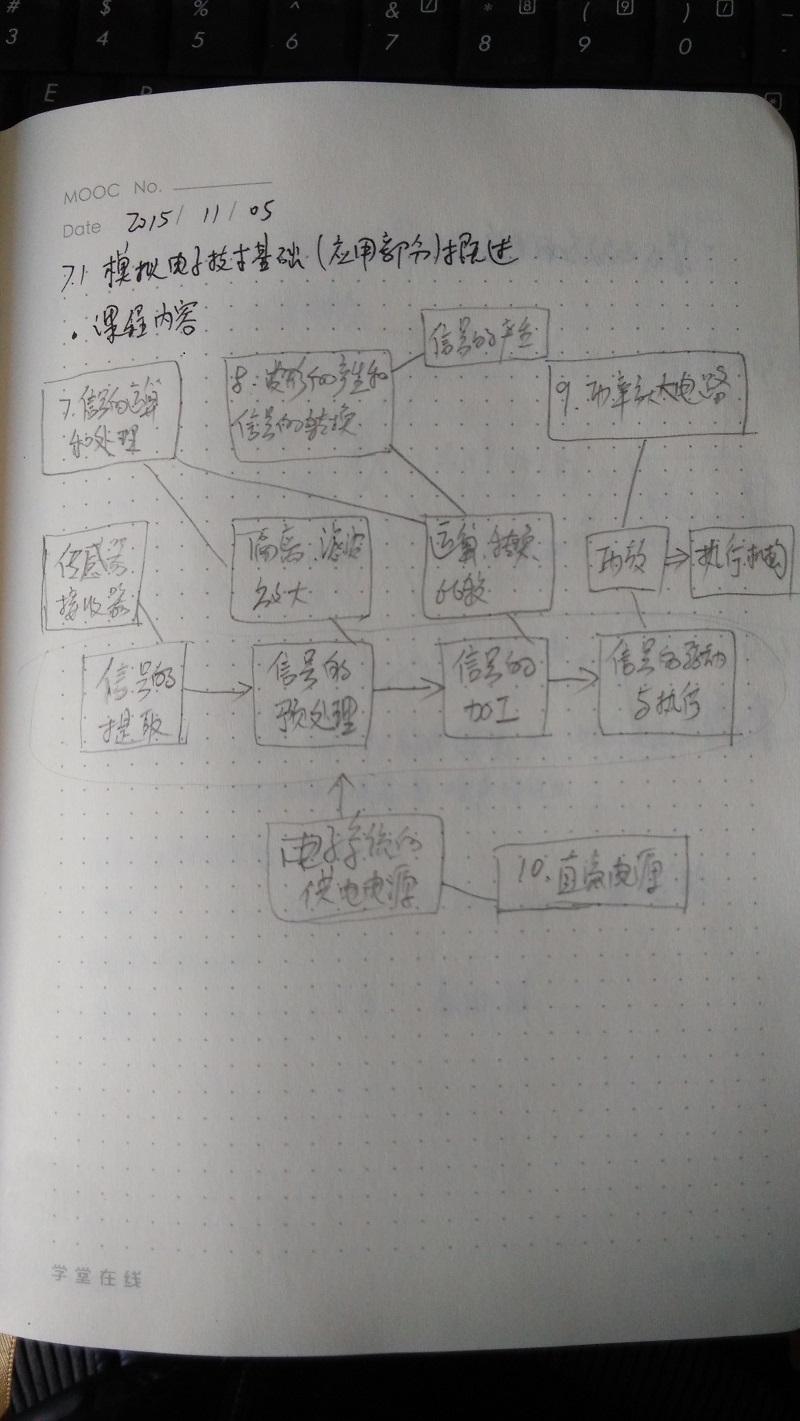 # $ % ^ & * ( )
3 4 5 6 7 8 9 0
E
MOOC No.
Date 2015/11/05
7.1 模拟电子技术基础(应用部分)概述
·课程内容
信号的产生
7.信号的运算
和处理
8.波形的产生和
信号的转换
9.功率放大电路
传感器
接收器
隔离、滤波
放大
运算、转换
比较
功放
执行机构
信号的
提取
信号的
预处理
信号的
加工
信号的驱动
与执行
电子系统的
供电电源
10.直流电源
学堂在线